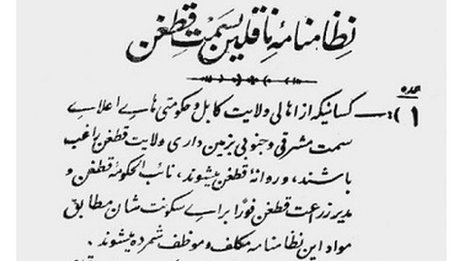 نظامنامهٔ ناقلین بسمت قطغن
ماده
(۱) :— کسانیکه از اهالی ولایت کابل و حکومتی هاے اعلاے
سمت مشرقی و جنوبی بزمین داری ولایت قطغن راغب
باشند، و روانهٔ قطغن میشوند، نائب الحکومهٔ قطغن و
مدیر زراعت قطغن فوراً براے سکونت شان مطابق
مواد این نظامنامه مکلف و موظف شمرده میشوند.